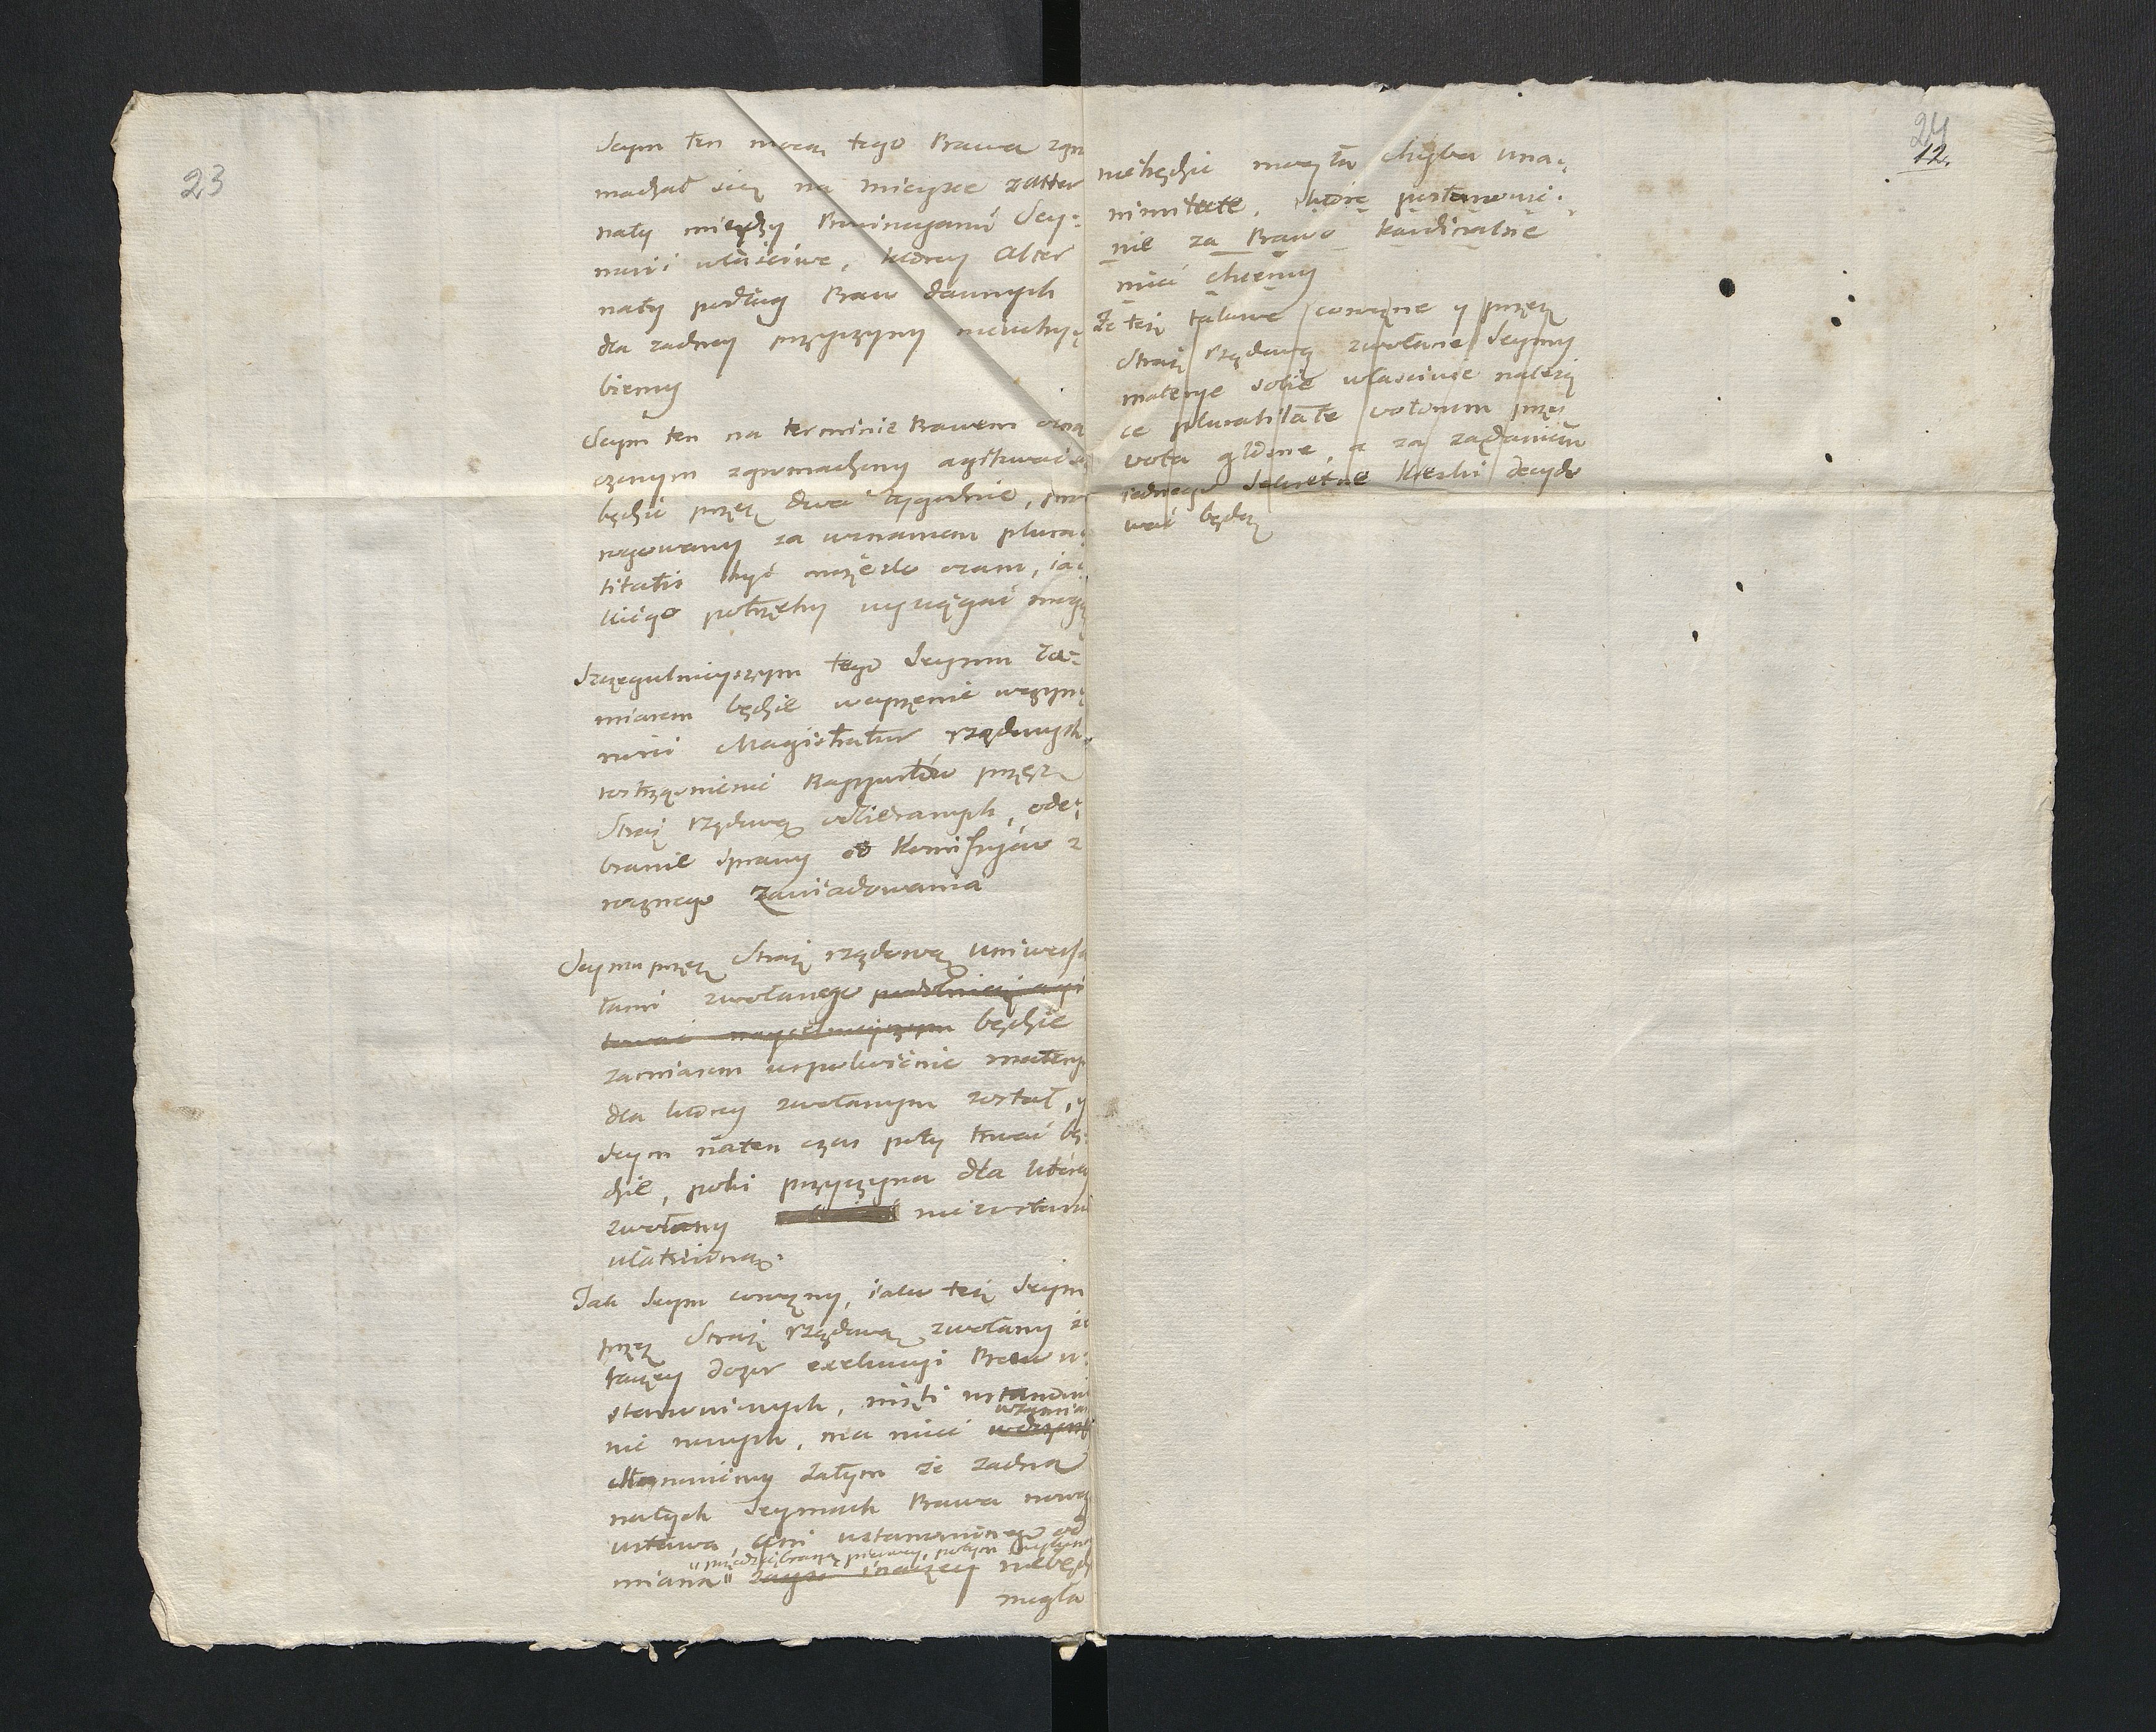 23
Seym ten mocą tego Prawa zgro
madzał się na mieysce z alter
naty między Prowincyami Sey:
mowi właściwe, ktorey Alter
naty podług Praw dawnych
dla żadney przyczyny nieuchy:
biemy
Seym ten na terminie Prawem ozna
czonym zgromadzony agitować się
będzie przez dwa Tygodnie, pror
rogowany za uznaniem plura:
litatis być może do czasu, ia:
kiego potrzeby wyciągać mogą
Szczegulnieyszym tego Seymu za:
miarem będzie weyrzenie w czyn:
ności Magistratur rządowych
rostrząśnienie Rapportów przez
Straż rządową odbieranych, ode:
branie sprawy od Kommissyiów z
rocznego Zawiadowania
Seymu przez Straż rządową Uniwersa
łami zwołanego
będzie
zamiarem uspokoienie materyi
dla ktorey zwołanym został, y
Seym na ten czas poty trwać bę:
dzie, poki przyczyna dla ktorey
zwołany niezostanie
ułatwioną.
Jak Seym coroczny, iako też Seym
przez Straż rządową zwołany ra
czey dozor exekucyi Praw u:
stanowionych, niźli ustanowie
nie nowych, ma mieć
Stanowiemy zatym że żadna
na tych Seymach Prawa nowego
ustawa, ani ustanowionego od
miana
niebędzie
mogła
24
12.
niebędzie mogła chyba una:
nimitate, ktore postanowie:
nie za Prawo kardinalne
mieć chcemy
Że też takowe coroczne y przez
Straż Rządową zwołane Seymy
materye sobie właściwie należą
ce pluralitate votorum przez
vota głośne, a za żądaniem
iednego sekretne kreski decydo
wać będą